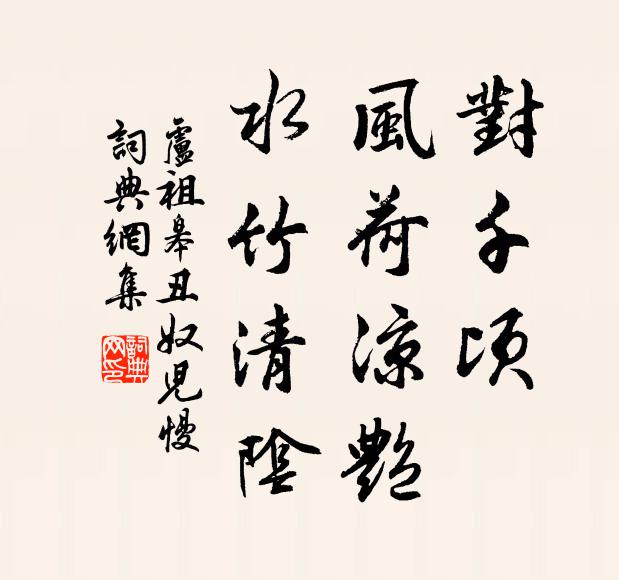 對千頃
風荷凉艷
水竹清陰
盧祖皋丑奴兒慢
詞典網集
詞典网印